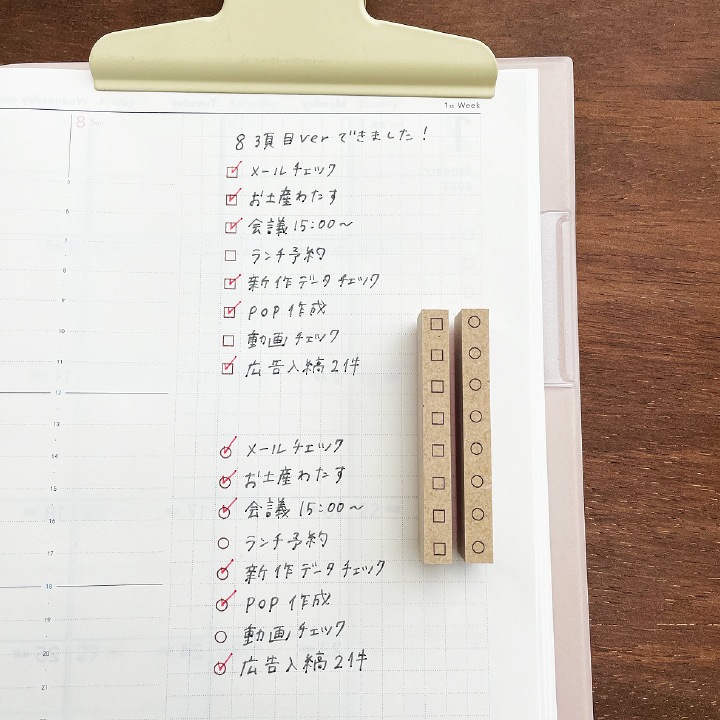 1st Week
8 Sun
8 3項目verできました!
メールチェック
お土産わたす
会議15:00〜
ランチ予約
新作データチェック
POP作成
動画チェック
広告入稿2件
メールチェック
お土産わたす
会議15:00〜
ランチ予約
新作データチェック
POP作成
動画チェック
広告入稿2件
5
6
7
8
9
10
11
12
13
14
15
16
17
18
19
20
21